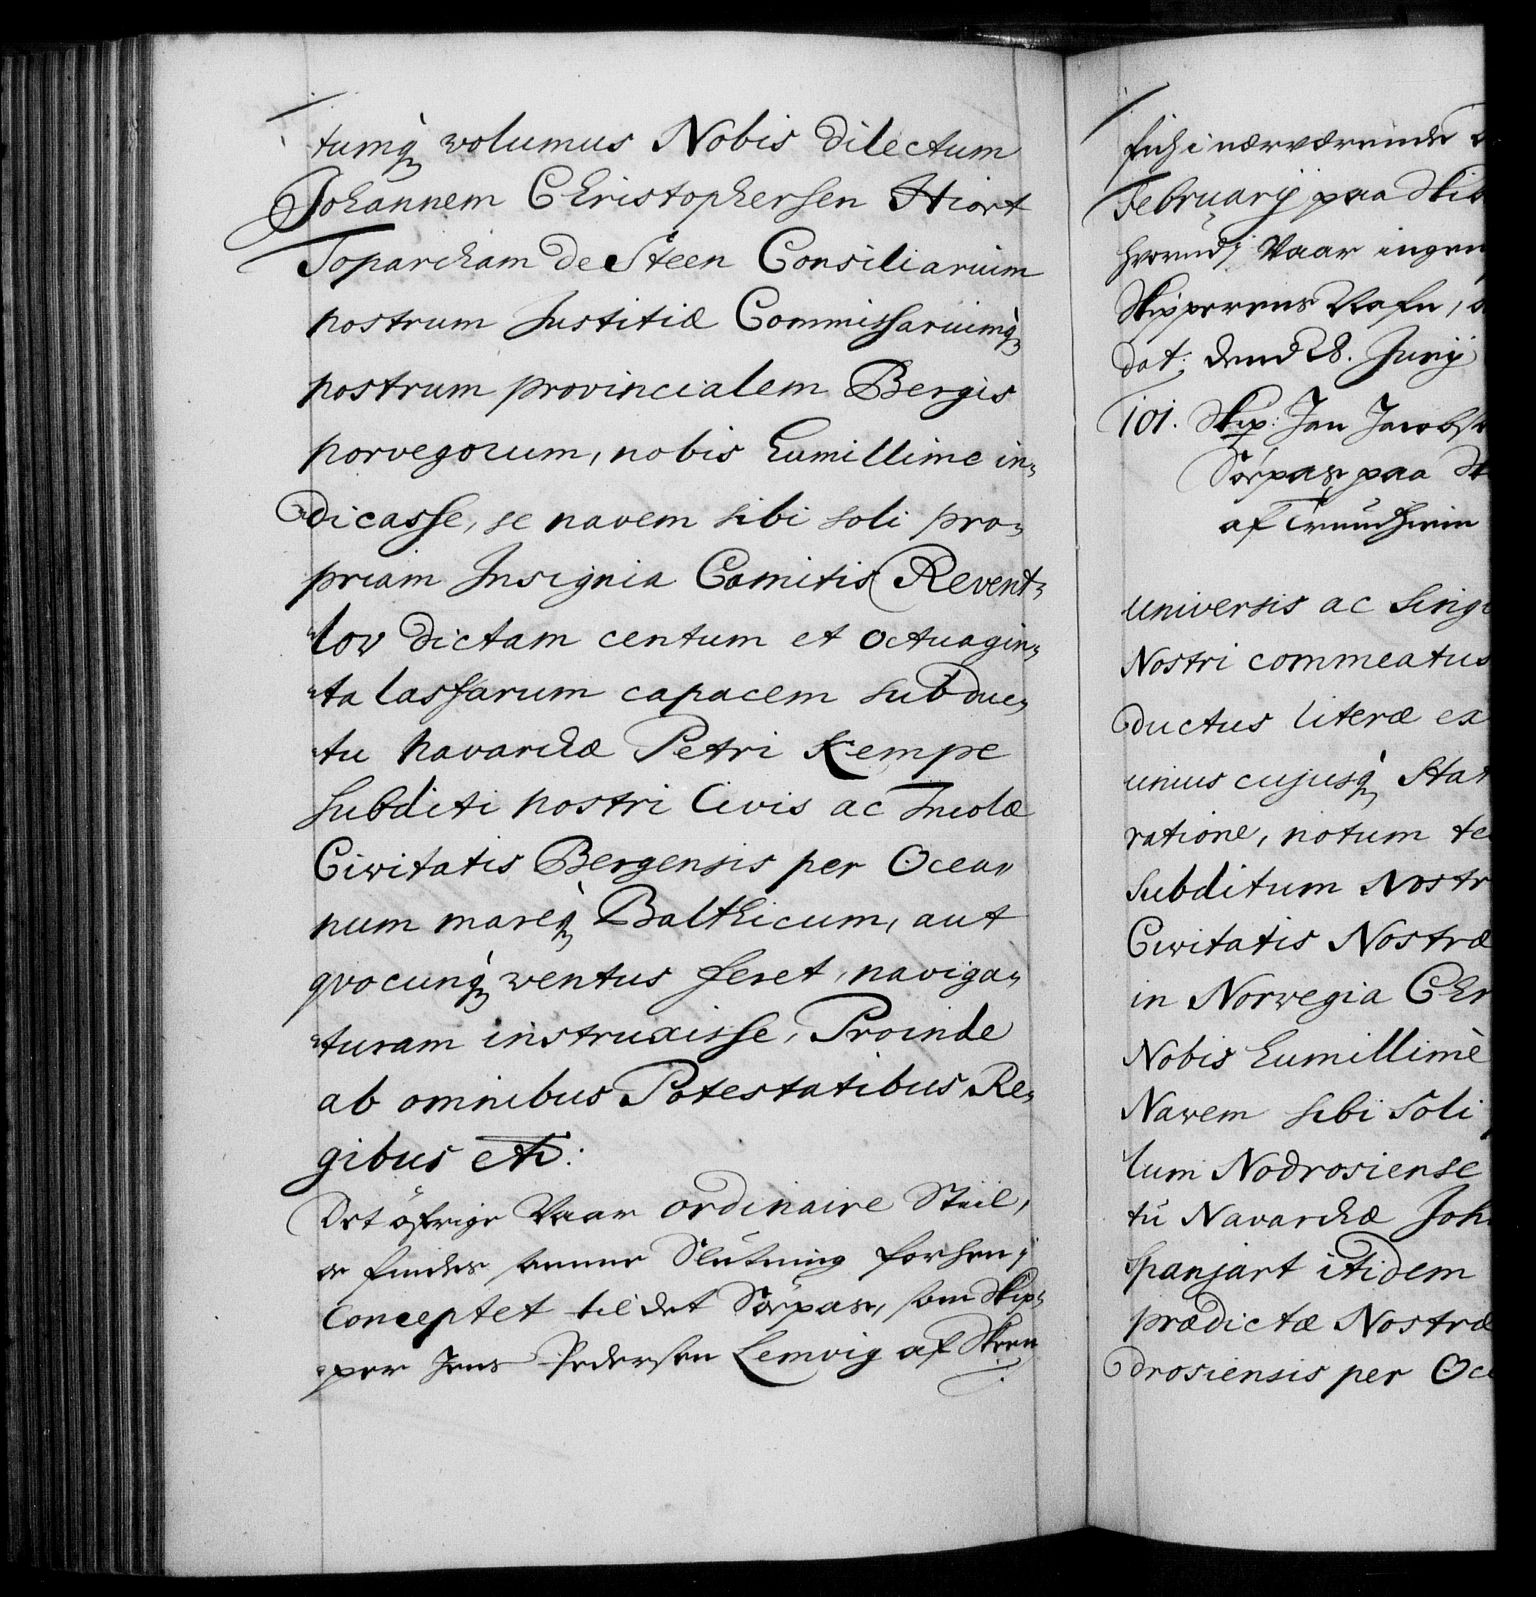 tumq̀ volumus Nobis dilectum
Johannem Christophersen Hiort
Toparcham de Steen Consiliarium
nostrum Justitiæ Commissariumq̀
nostrum provincialem Bergis
norvegorum, nobis humillime in„
dicasse, se navem sibi soli pro„
priam Insignia Comitis Revent„
„lov dictam centum et octuagin„
„ta lastarum capacem sub duc„
„tu Navarchæ Petri Kempe
subditi nostri Civis ac Incolæ
Civitatis Bergensis per Ocea„
num mareq̀ Balthicum, aut
qvocunq̀ ventus feret, naviga„
„turam instruxisse, Proinde
ab omnibus Potestatibus Re„
gibus etc:
Det öfrige Vaar ordinaire Stiil,
og findes denne Slutning forhen j
Conceptet til det Söepas, som Skip„
„per Jens Pedersen Lemvig af Skeen
fich i nærværende
Februarij paa Skib
hvorudj Vaar ingen
Skipperens Nafn,
dat: dend 28. Junij
101. Skip: Jan Jacobs
Söepas paa Sk
af Trundhiem
universis ac singu
Nostri commeatus
ductus literæ ex
unius cujusq̀ Stat
ratione, notum te
Subditum Nostr
Civitatis Nostræ
in Norvegia Chr
Nobis humillimè
Navem sibi soli
lum Nodrosiense
tu Navarchæ Joh
Spanjart itidem
prædictæ Nostræ
drosiensis per Oce